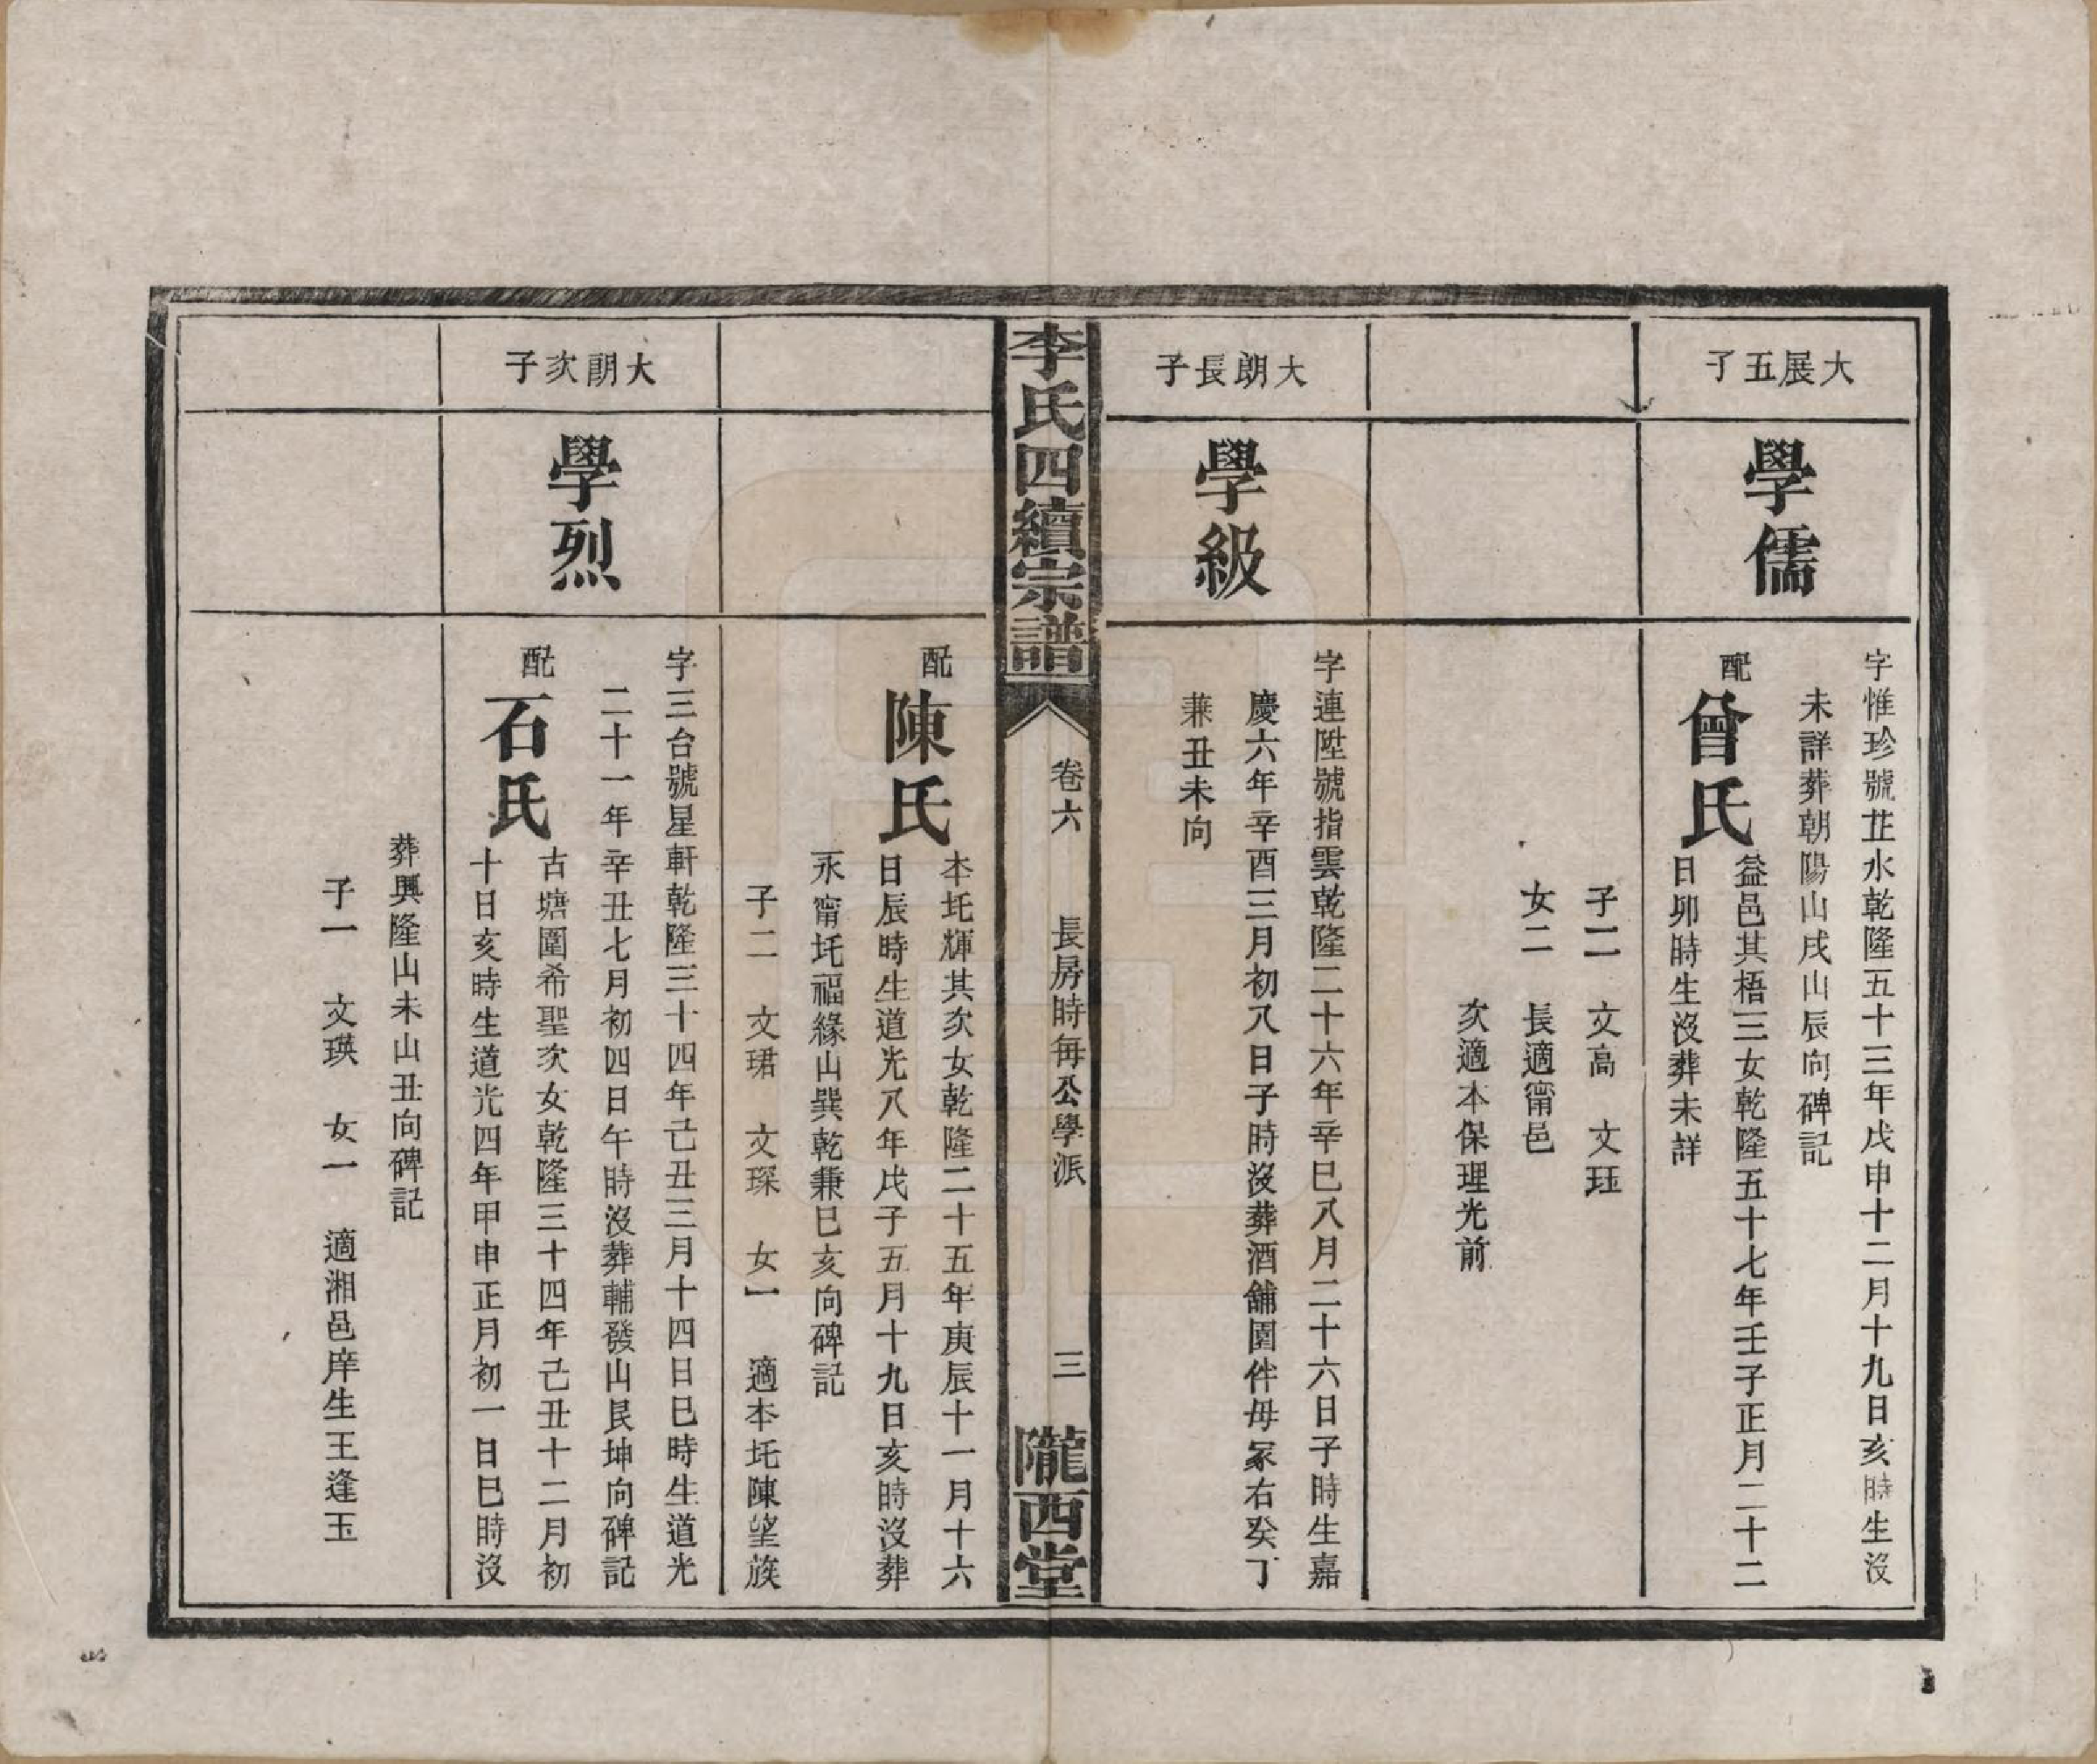 大展五子
學儒
字惟珍號芷水乾隆五十三年戊申十二月十九日亥時生沒
未詳葬朝陽山戌山辰向碑記
配
曾氏
益邑其梧三女乾隆五十七年壬子正月二十二
日卯時生沒葬未詳
子二 文高 文珏
女二 長適甯邑
次適本保理光前
大朗長子
學級
字連陞號指雲乾隆二十六年辛巳八月二十六日子時生嘉
慶六年辛酉三月初八日子時沒葬酒舖園伴母冢右癸丁
兼丑未向
李氏四續宗譜
卷六
長房時每公學派
三
隴西堂
配
陳氏
本圫輝其次女乾隆二十五年庚辰十一月十六
日辰時生道光八年戊子五月十九日亥時沒葬
永甯圫福緣山巽乾兼巳亥向碑記
子二 文珺 文琛 女一 適本圫陳望族
大朗次子
學烈
字三台號星軒乾隆三十四年己丑三月十四日巳時生道光
二十一年辛丑七月初四日午時沒葬輔發山艮坤向碑記
配
石氏
古塘圍希聖次女乾隆三十四年己丑十二月初
十日亥時生道光四年甲申正月初一日巳時沒
葬興隆山未山丑向碑記
子一 文瑛 女一 適湘邑庠生王逢玉